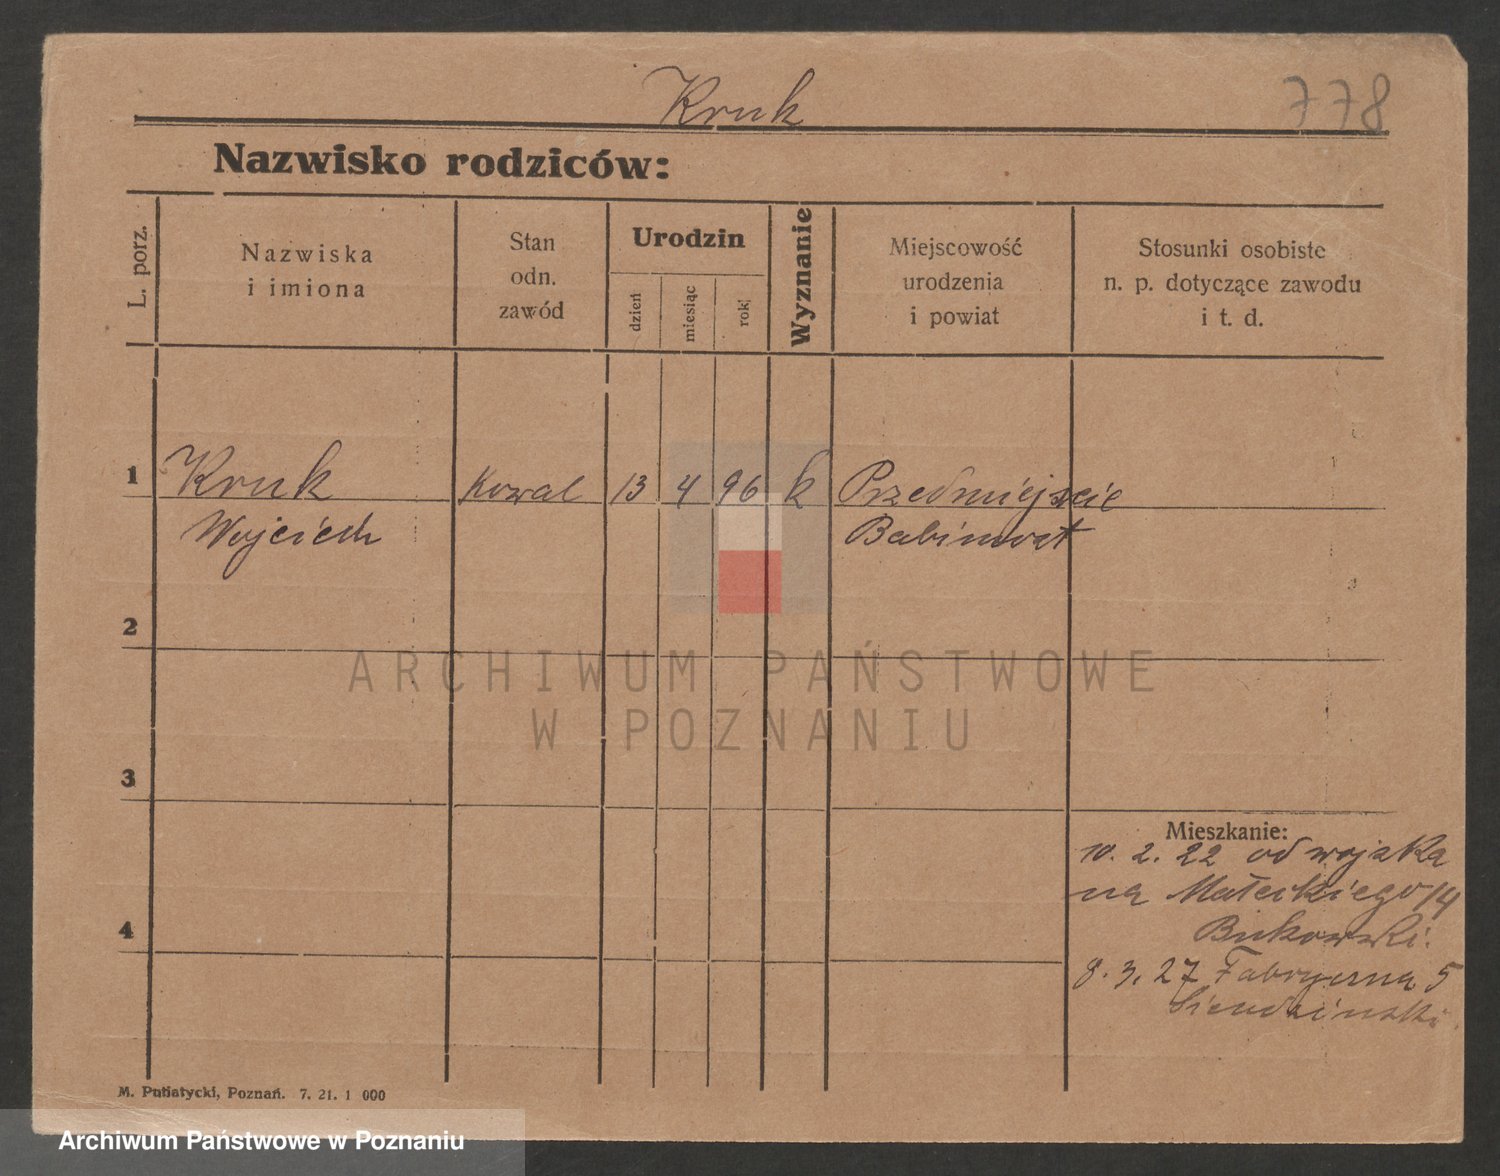 Kruk
778
Nazwisko rodziców:
L. porz.
Nazwiska
i imiona
Stan
odn.
zawód
Urodzin
dzień
miesiąc
rok
Wyznanie
Miejscowość
urodzenia
i powiat
Stosunki osobiste
n. p. dotyczące zawodu
i t. d.
1 Kruk Kowal 13 4 96 k Przedmiejście
Wojciech Babimost
2
ARCHIWUM PAŃSTWOWE
W POZNANIU
3
Mieszkanie:
10. 2. 22 od wojska
na Małeckiego 14
4 Bukowski.
8. 3. 27 Fabryczna 5
M. Putiatycki, Poznań. 7. 21. 1 000
Archiwum Państwowe w Poznaniu